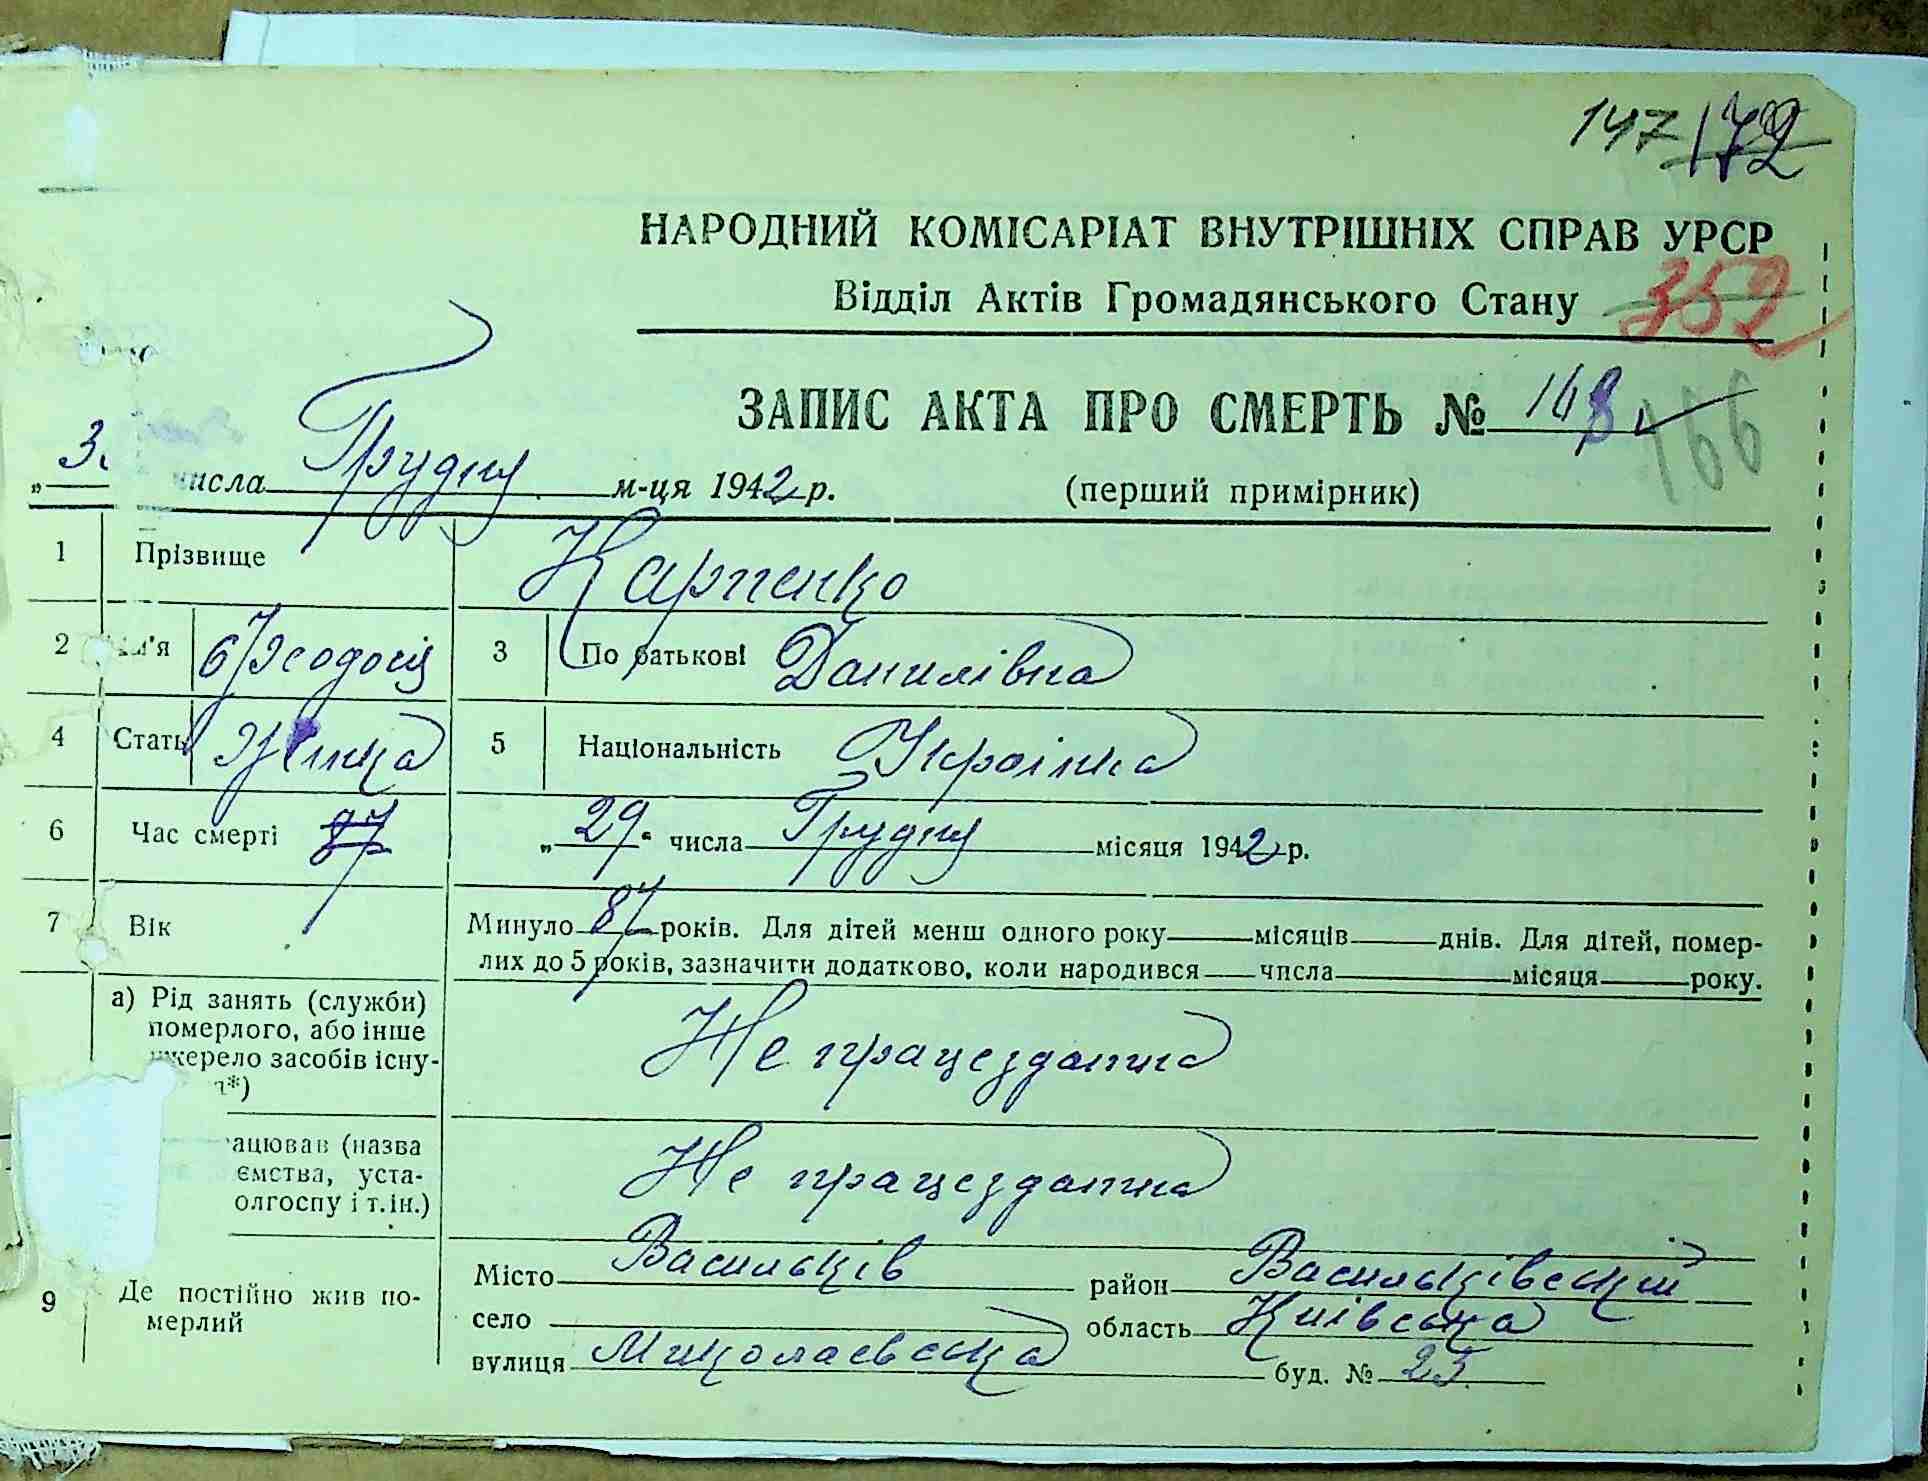 147 172
НАРОДНИЙ КОМІСАРІАТ ВНУТРІШНІХ СПРАВ УРСР
Відділ Актів Громадянського Стану 352
ЗАПИС АКТА ПРО СМЕРТЬ № 148 166
„3 числа Грудня м-ця 1942 р. (перший примірник)
1 Прізвище Карпенко
2 м'я Феодосія 3 По батькові Данилівна
4 Стать Жінка 5 Національність Українка
6 Час смерті 87 „29" числа Грудня місяця 1942 р.
7 Вік Минуло 87 років. Для дітей менш одного року місяців днів. Для дітей, помер-
лих до 5 років, зазначити додатково, коли народився числа місяця року.
а) Рід занять (служби)
померлого, або інше
жерело засобів існу-
*)
Не працездатна
ацював (назва
ємства, уста-
олгоспу і т.ін.)
Не працездатна
9 Де постійно жив по-
мерлий
Місто Васильків район Васильківський
село область Київська
вулиця Миколаевська буд. № 25